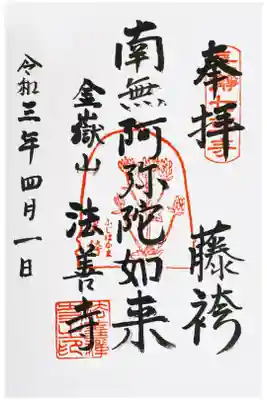 奉拝
藤袴
南無阿弥陀如来
金嶽山 法善寺
令和三年四月一日
ふじばかま